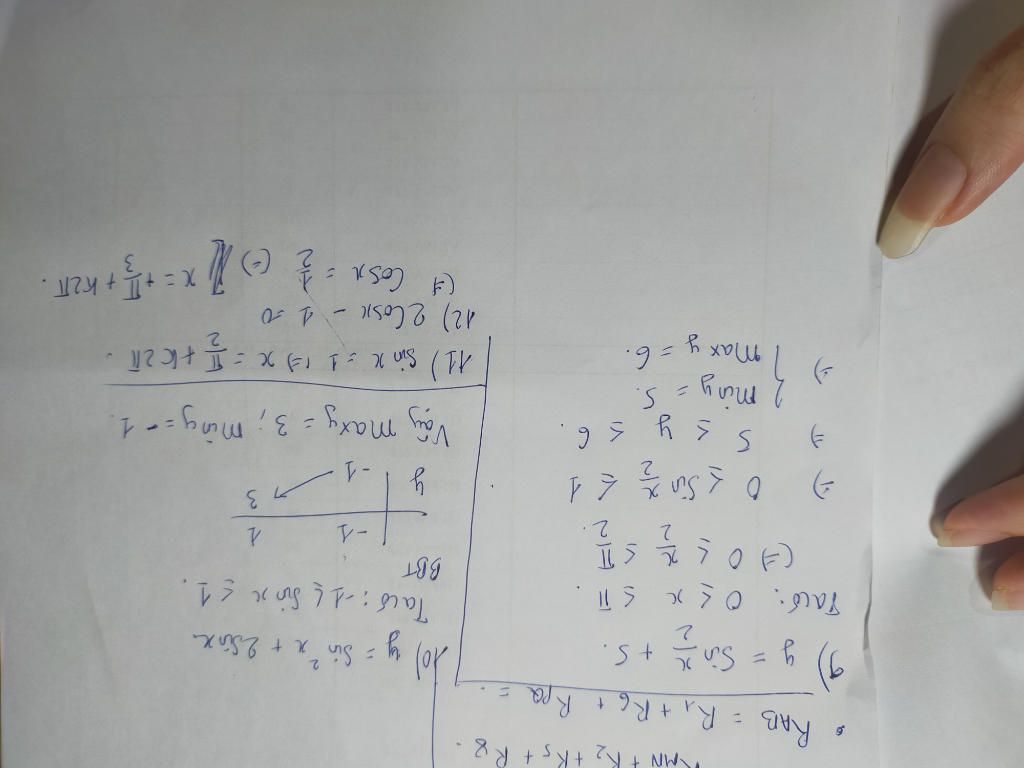 RMN + R2 + R5 + R8.
• RAB = R1 + R6 + RPQ = .
9) y = sin x/2 + 5.
Ta có: 0 ≤ x ≤ π.
(=) 0 ≤ x/2 ≤ π/2.
=) 0 ≤ sin x/2 ≤ 1
=) 5 ≤ y ≤ 6.
=) { min y = 5.
max y = 6.
10) y = sin²x + 2sinx
Ta có: -1 ≤ sin x ≤ 1.
BBT
-1 1
y -1 3
Vậy max y = 3; min y = -1.
11) sin x = 1 (=) x = π/2 + k2π.
12) 2cosx - 1 = 0
(=) cosx = 1/2 (=) x = + π/3 + k2π.